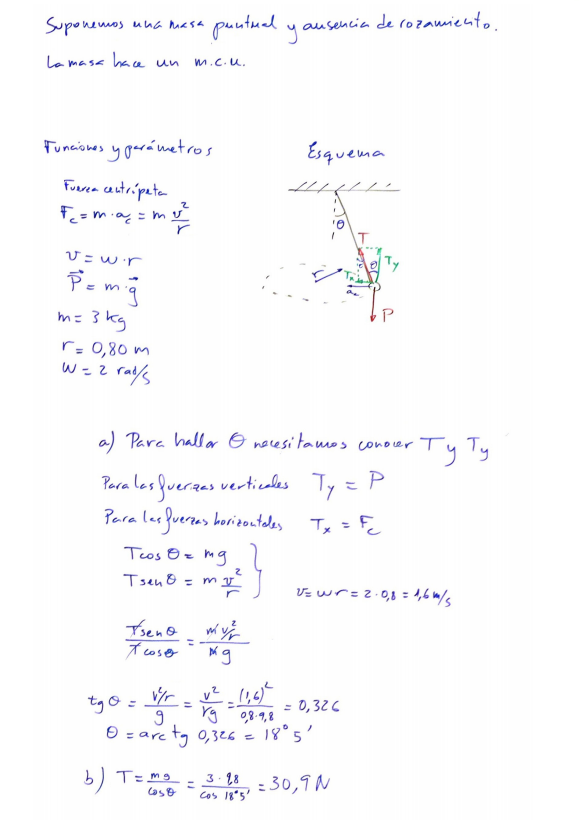 Suponemos una masa puntual y ausencia de rozamiento.
La masa hace un m.c.u.
Funciones y parámetros
Esquema
Fuerza centrípeta
F_c = m · a_c = m v²/r
v = w · r
P⃗ = m · g⃗
m = 3 kg
r = 0,80 m
W = 2 rad/s
θ
T
θ
θ
Ty
Tx
r
a_c
P
a) Para hallar θ necesitamos conocer T y Ty
Para las fuerzas verticales Ty = P
Para las fuerzas horizontales Tx = F_c
T cos θ = mg
T sen θ = m v²/r
v = wr = 2 · 0,8 = 1,6 m/s
T sen θ / T cos θ = m v²/r / m g
tg θ = v²/r / g = v² / rg = (1,6)² / 0,8·9,8 = 0,326
θ = arc tg 0,326 = 18° 5'
b) T = mg / cos θ = 3 · 9,8 / cos 18° 5' = 30,9 N